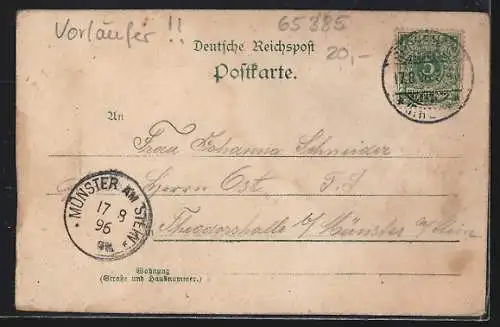 Vorläufer !!
65385
20,-
Deutsche Reichspost
Postkarte.
5
17.8.
An
Frau Johanna Schneider
Herrn Ost
Theodorshalle b/ Münster a/ Stein
MÜNSTER AM STEIN
17 8
96
Wohnung
(Straße und Hausnummer.)